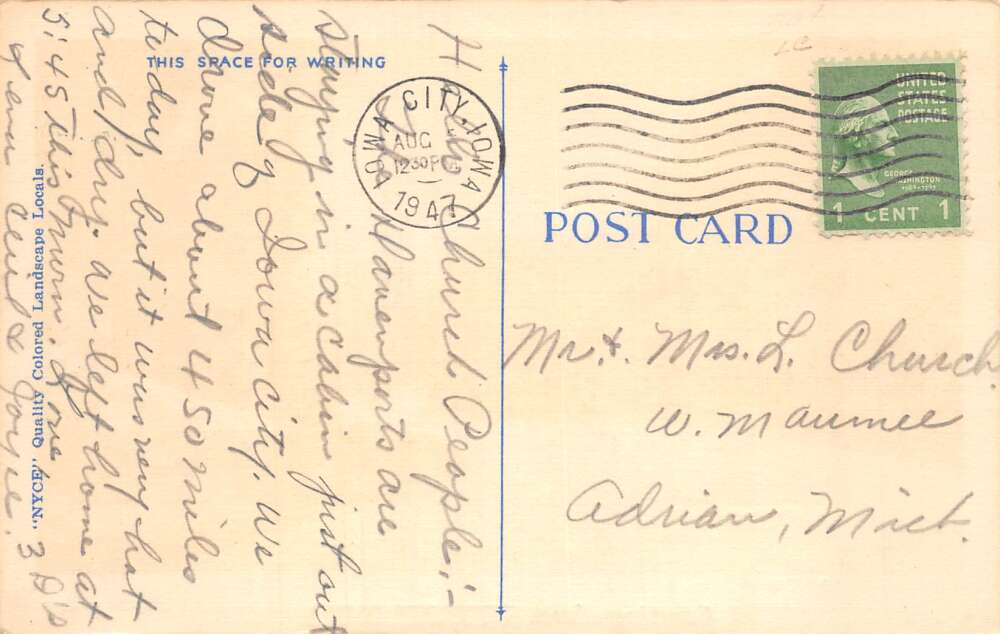 THIS SPACE FOR WRITING
Hello Church People:-
The Davenports are
staying in a cabin just out
side of Iowa City. We
drove about 450 miles
today, but it was very hot
and dry. We left home at
5:45 this morn. Love,
& Joyce. 3 D's
"NYCE" Quality Colored Landscape Locals.
IOWA CITY, IOWA
AUG
12 30 PM
1947
UNITED
STATES
POSTAGE
GEORGE
WASHINGTON
1 CENT 1
POST CARD
Mr. & Mrs. L. Church
W. Maumee
Adrian, Mich.